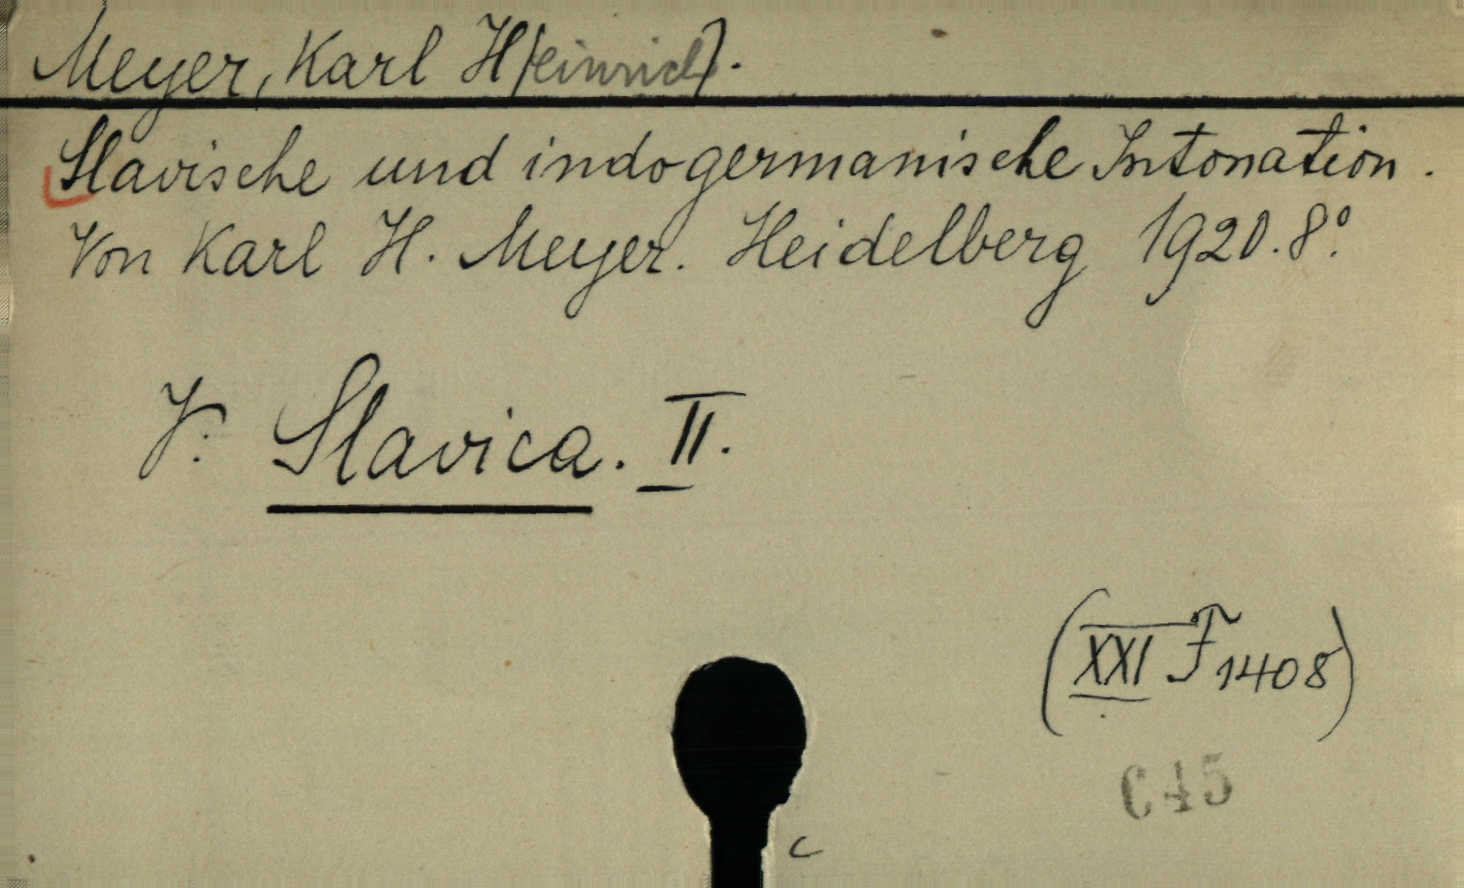 Meyer, Karl H[einrich].
Slavische und indogermanische Intonation.
Von Karl H. Meyer. Heidelberg 1920. 8°.
V. Slavica. II.
(XXI F 1408)
C45
c